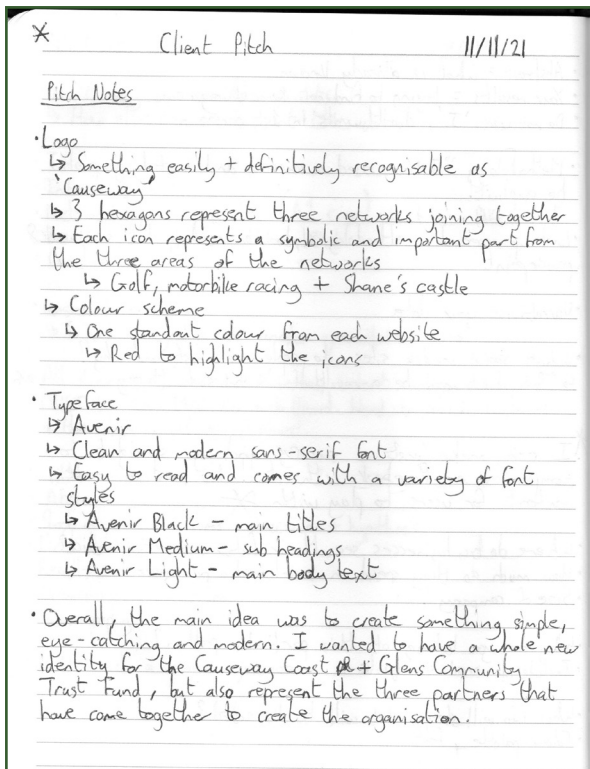 * Client Pitch 11/11/21
Pitch Notes
· Logo
↳ Something easily + definitively recognisable as
'Causeway'
↳ 3 hexagons represent three networks joining together
↳ Each icon represents a symbolic and important part from
the three areas of the networks
↳ Golf, motorbike racing + Shane's castle
↳ Colour scheme
↳ One standout colour from each website
↳ Red to highlight the icons
· Typeface
↳ Avenir
↳ Clean and modern sans-serif font
↳ Easy to read and comes with a variety of font
styles
↳ Avenir Black - main titles
↳ Avenir Medium - sub headings
↳ Avenir Light - main body text
· Overall, the main idea was to create something simple,
eye-catching and modern. I wanted to have a whole new
identity for the Causeway Coast + Glens Community
Trust Fund, but also represent the three partners that
have come together to create the organisation.